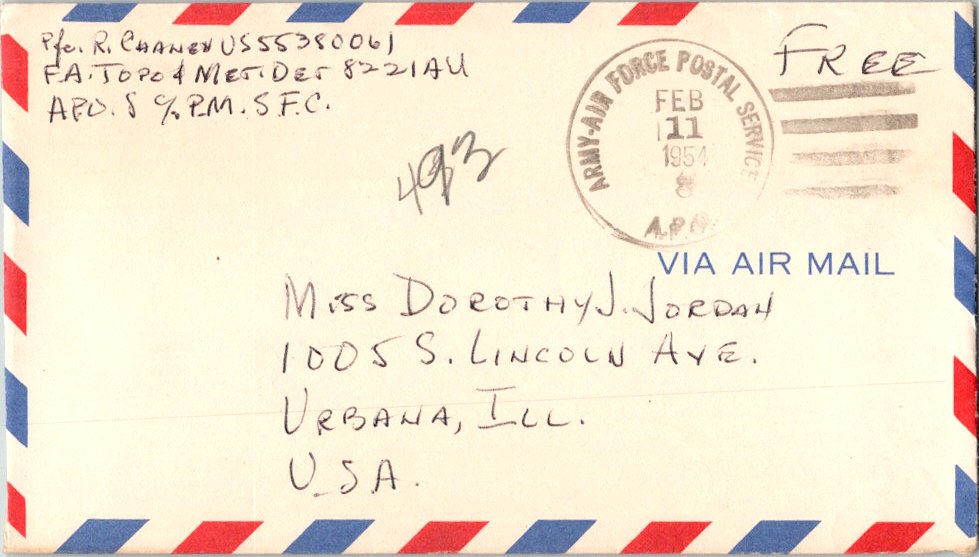 Pfc. R. Chaney US55380061
F.A. Topo & Met. Det 8221AU
APO. 8 c/o P.M. S.F.C.
Free
ARMY-AIR FORCE POSTAL SERVICE
FEB
11
1954
8
A.P.O.
493
VIA AIR MAIL
Miss Dorothy J. Jordan
1005 S. Lincoln Ave.
Urbana, Ill.
U.S.A.